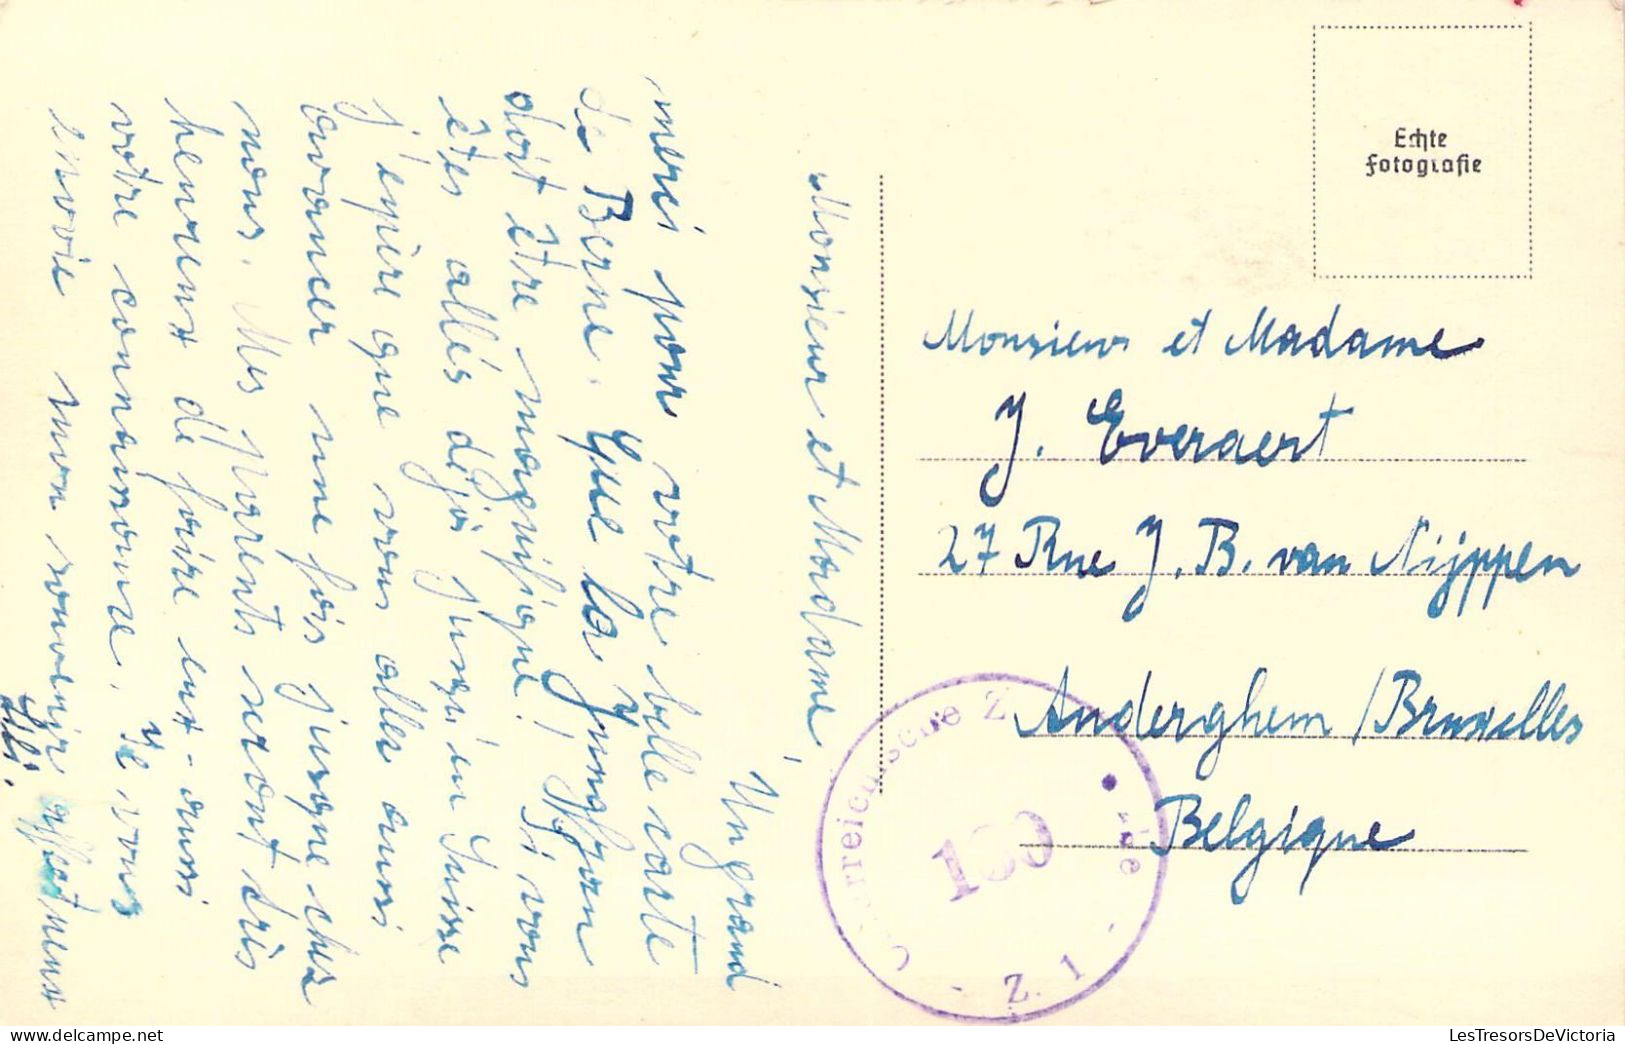 Monsieur et Madame,
Un grand
merci pour votre belle carte
de Berne. Que la Jungfrau
doit être magnifique! Si vous
êtes allés déjà jusqu'en Suisse
j'espère que vous allez aussi
avancer une fois jusque chez
nous. Mes parents seront très
heureux de faire eux-aussi
votre connaissance. Je vous
envoie mon souvenir affectueux
Echte
Fotografie
Monsieur et Madame
J. Everaert
27 Rue J. B. van Nijppen
Anderghem / Bruxelles
Belgique
Österreichische Z
180
Z. 1
LesTresorsDeVictoria